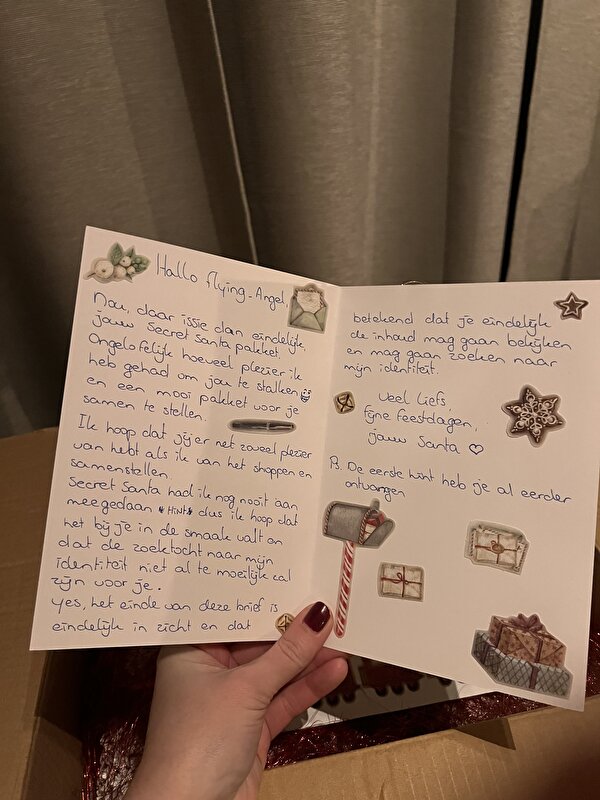 Hallo flying-Angel,
Nou, daar issie dan eindelijk,
jouw Secret Santa pakket.
Ongelofelijk hoeveel plezier ik
heb gehad om jou te stalken
en een mooi pakket voor je
samen te stellen.
Ik hoop dat jij er net zoveel plezier
van hebt als ik van het shoppen en
samenstellen.
Secret Santa had ik nog nooit aan
meegedaan *HINT* dus ik hoop dat
het bij je in de smaak valt en
dat de zoektocht naar mijn
identiteit niet al te moeilijk zal
zijn voor je.
Yes, het einde van deze brief is
eindelijk in zicht en dat
betekend dat je eindelijk
de inhoud mag gaan bekijken
en mag gaan zoeken naar
mijn identiteit.
Veel liefs,
fijne feestdagen,
jouw Santa ♡
Ps. De eerste hint heb je al eerder
ontvangen